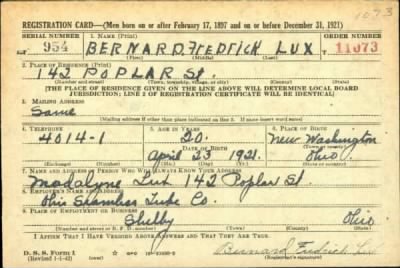 1073
REGISTRATION CARD—(Men born on or after February 17, 1897 and on or before December 31, 1921)
SERIAL NUMBER 1. NAME (Print) ORDER NUMBER
954 BERNARD FREDRICK LUX 11073
(First) (Middle) (Last)
2. PLACE OF RESIDENCE (Print)
142 POPLAR St.
(Number and street) (Town, township, village, or city) (County) (State)
[THE PLACE OF RESIDENCE GIVEN ON THE LINE ABOVE WILL DETERMINE LOCAL BOARD
JURISDICTION; LINE 2 OF REGISTRATION CERTIFICATE WILL BE IDENTICAL]
3. MAILING ADDRESS
Same
[Mailing address if other than place indicated on line 2. If same insert word same]
4. TELEPHONE 5. AGE IN YEARS 6. PLACE OF BIRTH
4014-1 20. New Washington
DATE OF BIRTH (Town or county)
April 23 1921. Ohio
(Exchange) (Number) (Mo.) (Day) (Yr.) (State or country)
7. NAME AND ADDRESS OF PERSON WHO WILL ALWAYS KNOW YOUR ADDRESS
Madalyne Lux 142 Poplar St.
8. EMPLOYER'S NAME AND ADDRESS
Ohio Seamless Tube Co.
9. PLACE OF EMPLOYMENT OR BUSINESS
Shelby Ohio
(Number and street or R. F. D. number) (Town) (County) (State)
I AFFIRM THAT I HAVE VERIFIED ABOVE ANSWERS AND THAT THEY ARE TRUE.
D. S. S. Form 1 GPO Bernard Fredrick Lux
(Revised 1-1-42) (Registrant's signature)